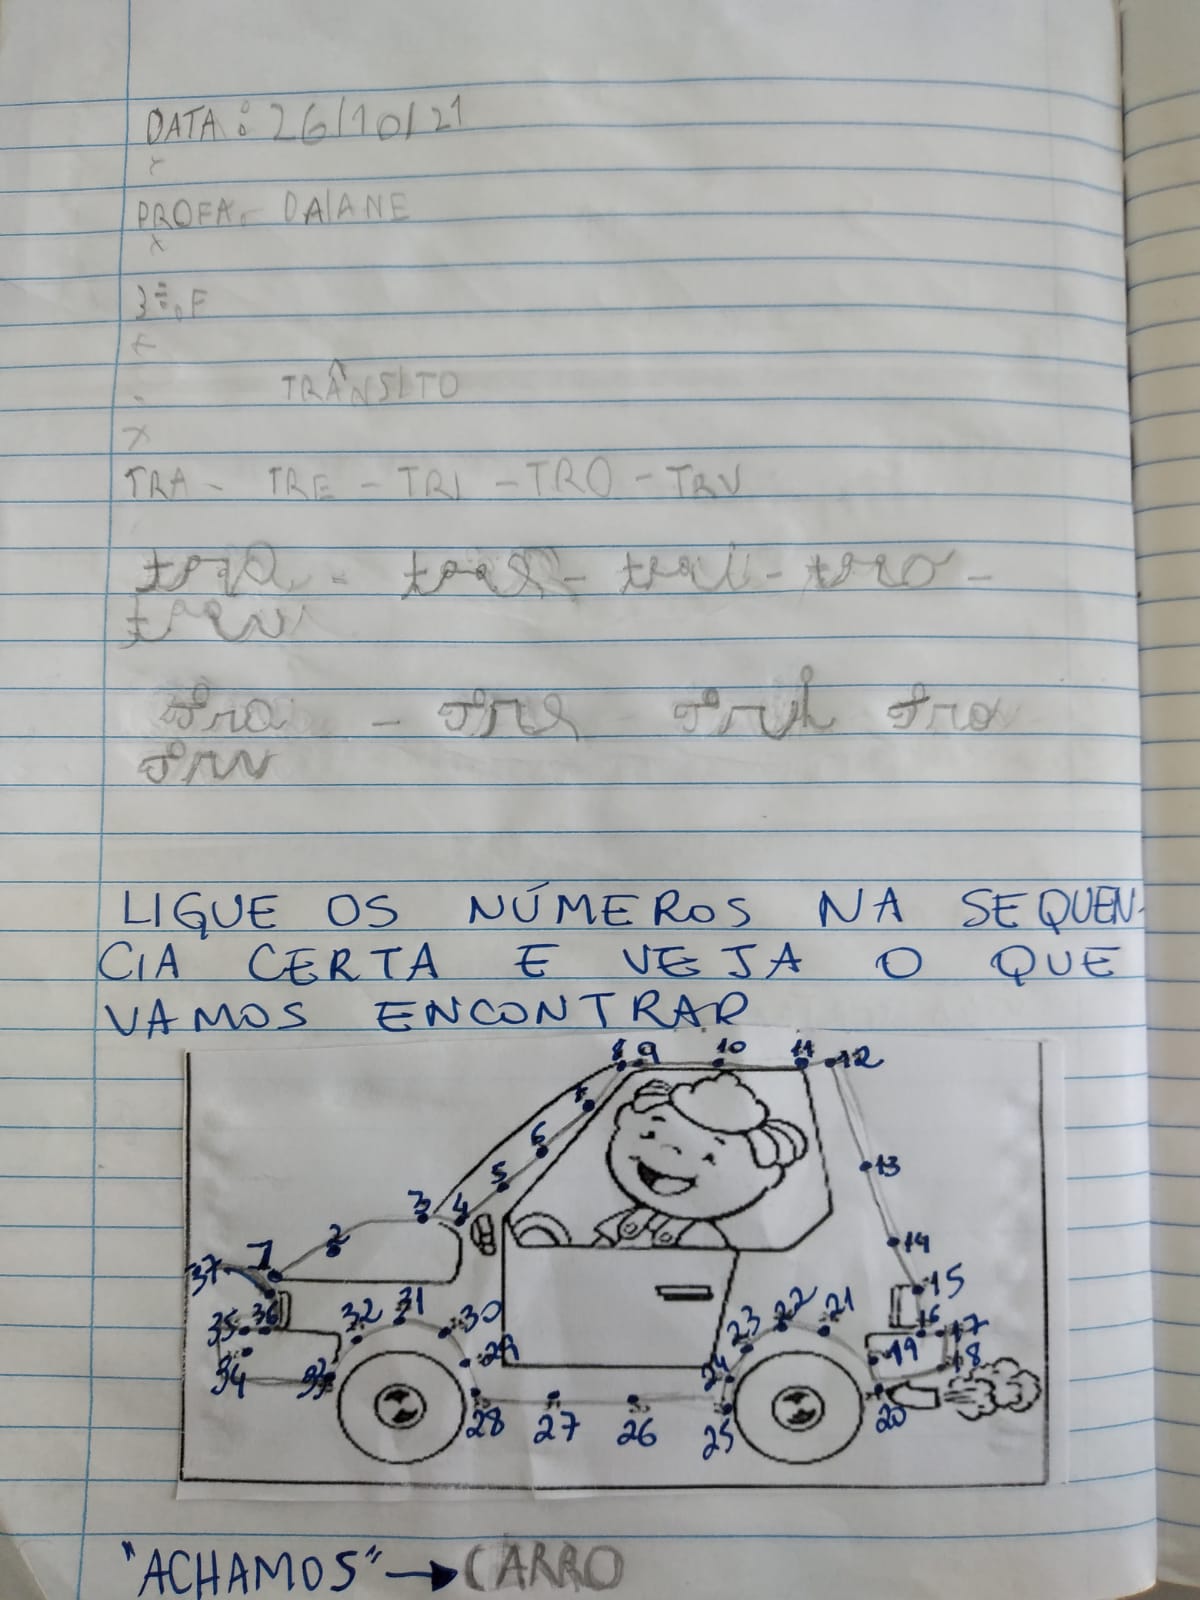 DATA: 26/10/21
PROFA. DAIANE
3ª.F
TRÂNSITO
TRA - TRE - TRI - TRO - TRU
tra - tre - tri - tro -
tru
Tra - Tre Tri Tro
Tru
LIGUE OS NÚMEROS NA SEQUEN-
CIA CERTA E VEJA O QUE
VAMOS ENCONTRAR
8 9 10 11 12
7
6
5 13
3 4
2 14
37 1 15
35 36 32 31 30 23 22 21 16 17
34 33 29 24 19 18
28 27 26 25 20
"ACHAMOS" → CARRO